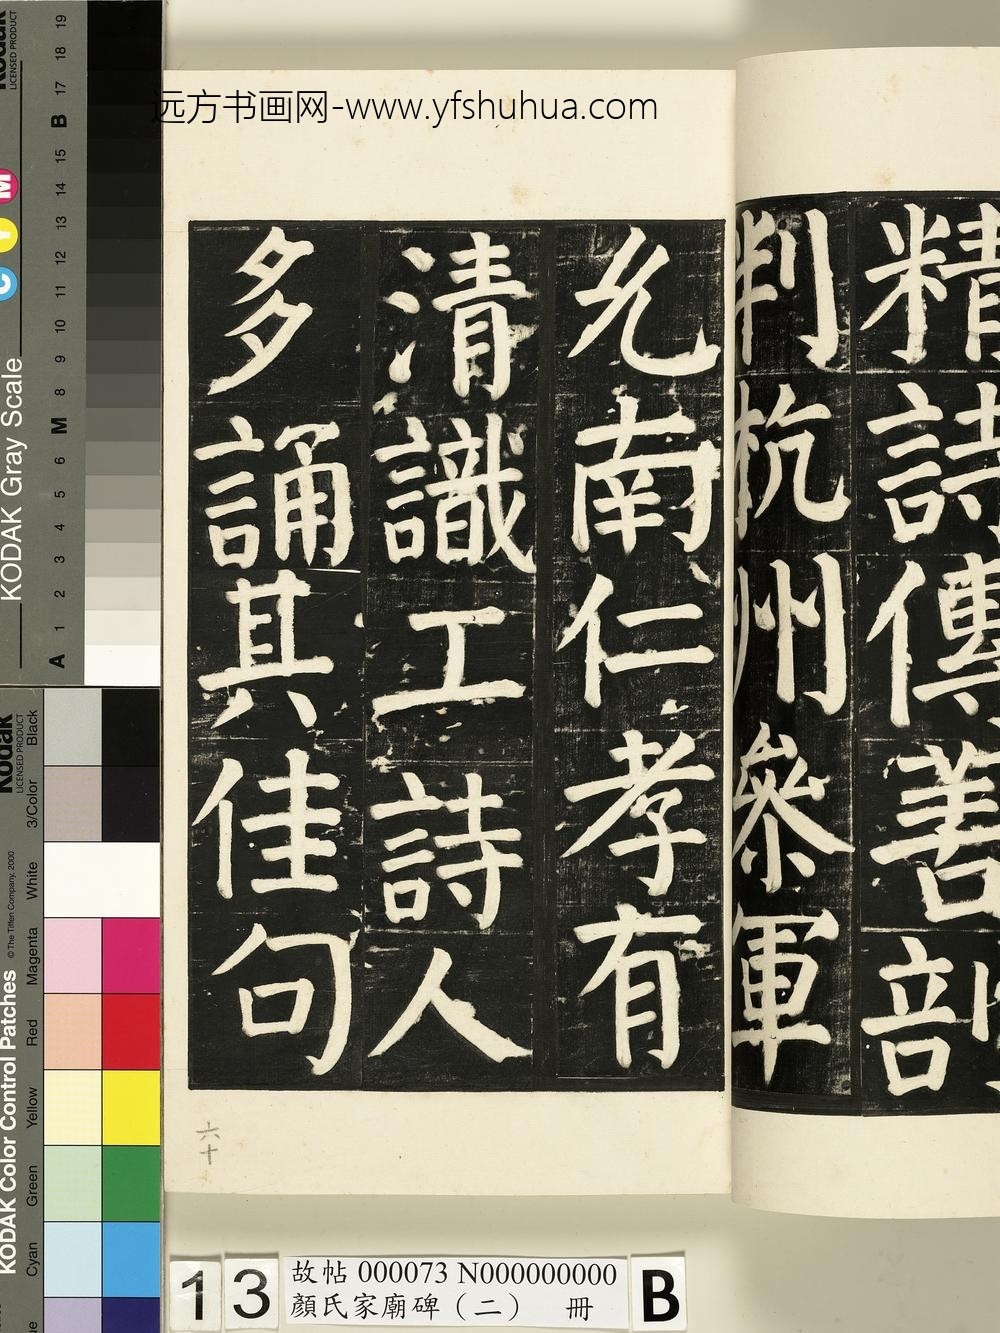 远方书画网-www.yfshuhua.com
精詩傳善
判杭州參軍
允南仁孝有
清識工詩人
多誦其佳句
六十
13
故帖 000073 N000000000
顏氏家廟碑（二） 冊
B
KODAK Gray Scale
Kodak
LICENSED PRODUCT
C Y M
A 1 2 3 4 5 6 M 8 9 10 11 12 13 14 15 B 17 18 19
KODAK Color Control Patches
©The Tiffen Company, 2000
Kodak
LICENSED PRODUCT
Cyan Green Yellow Red Magenta White 3/Color Black